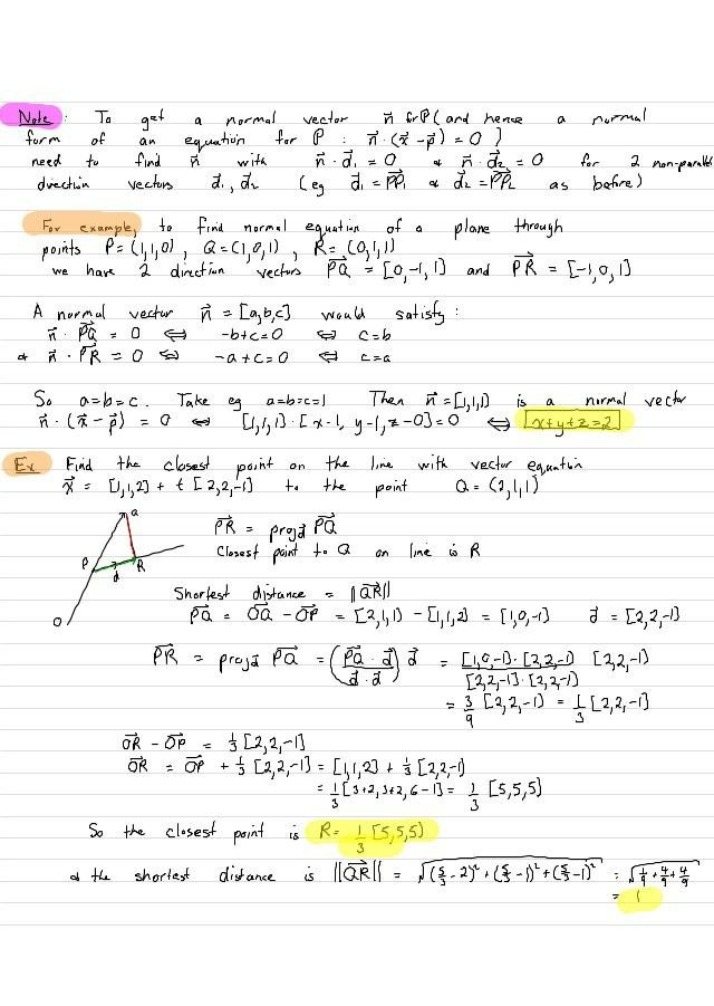 Note: To get a normal vector n⃗ for P (and hence a normal
form of an equation for P : n⃗·(x⃗-p⃗) = 0 )
need to find n⃗ with n⃗·d⃗₁ = 0 & n⃗·d⃗₂ = 0 for 2 non-parallel
direction vectors d⃗₁, d⃗₂ (eg d⃗₁ = PP₁ & d⃗₂ = PP₂ as before)
For example, to find normal equation of a plane through
points P = (1,1,0), Q = (1,0,1), R = (0,1,1)
we have 2 direction vectors PQ = [0,-1,1] and PR = [-1,0,1]
A normal vector n⃗ = [a,b,c] would satisfy:
n⃗ · PQ = 0 ⇔ -b+c=0 ⇔ c=b
& n⃗ · PR = 0 ⇔ -a+c=0 ⇔ c=a
So a=b=c. Take eg a=b=c=1 Then n⃗=[1,1,1] is a normal vector
n⃗ · (x⃗-p⃗) = 0 ⇔ [1,1,1]·[x-1, y-1, z-0]=0 ⇔ [x+y+z=2]
Ex Find the closest point on the line with vector equation
x⃗ = [1,1,2] + t [2,2,-1] to the point Q = (2,1,1)
Q
P
d
R
O
PR = proj d PQ
Closest point to Q on line is R
Shortest distance = ||QR||
PQ = OQ - OP = [2,1,1] - [1,1,2] = [1,0,-1] d⃗ = [2,2,-1]
PR = proj d PQ = (PQ · d / d · d) d⃗ = [1,0,-1]·[2,2,-1] / [2,2,-1]·[2,2,-1] [2,2,-1]
= 3/9 [2,2,-1] = 1/3 [2,2,-1]
OR - OP = 1/3 [2,2,-1]
OR = OP + 1/3 [2,2,-1] = [1,1,2] + 1/3 [2,2,-1]
= 1/3 [3+2, 3+2, 6-1] = 1/3 [5,5,5]
So the closest point is R = 1/3 [5,5,5]
& the shortest distance is ||QR|| = √(5/3 - 2)² + (5/3 - 1)² + (5/3 - 1)² = √1/9 + 4/9 + 4/9
= 1